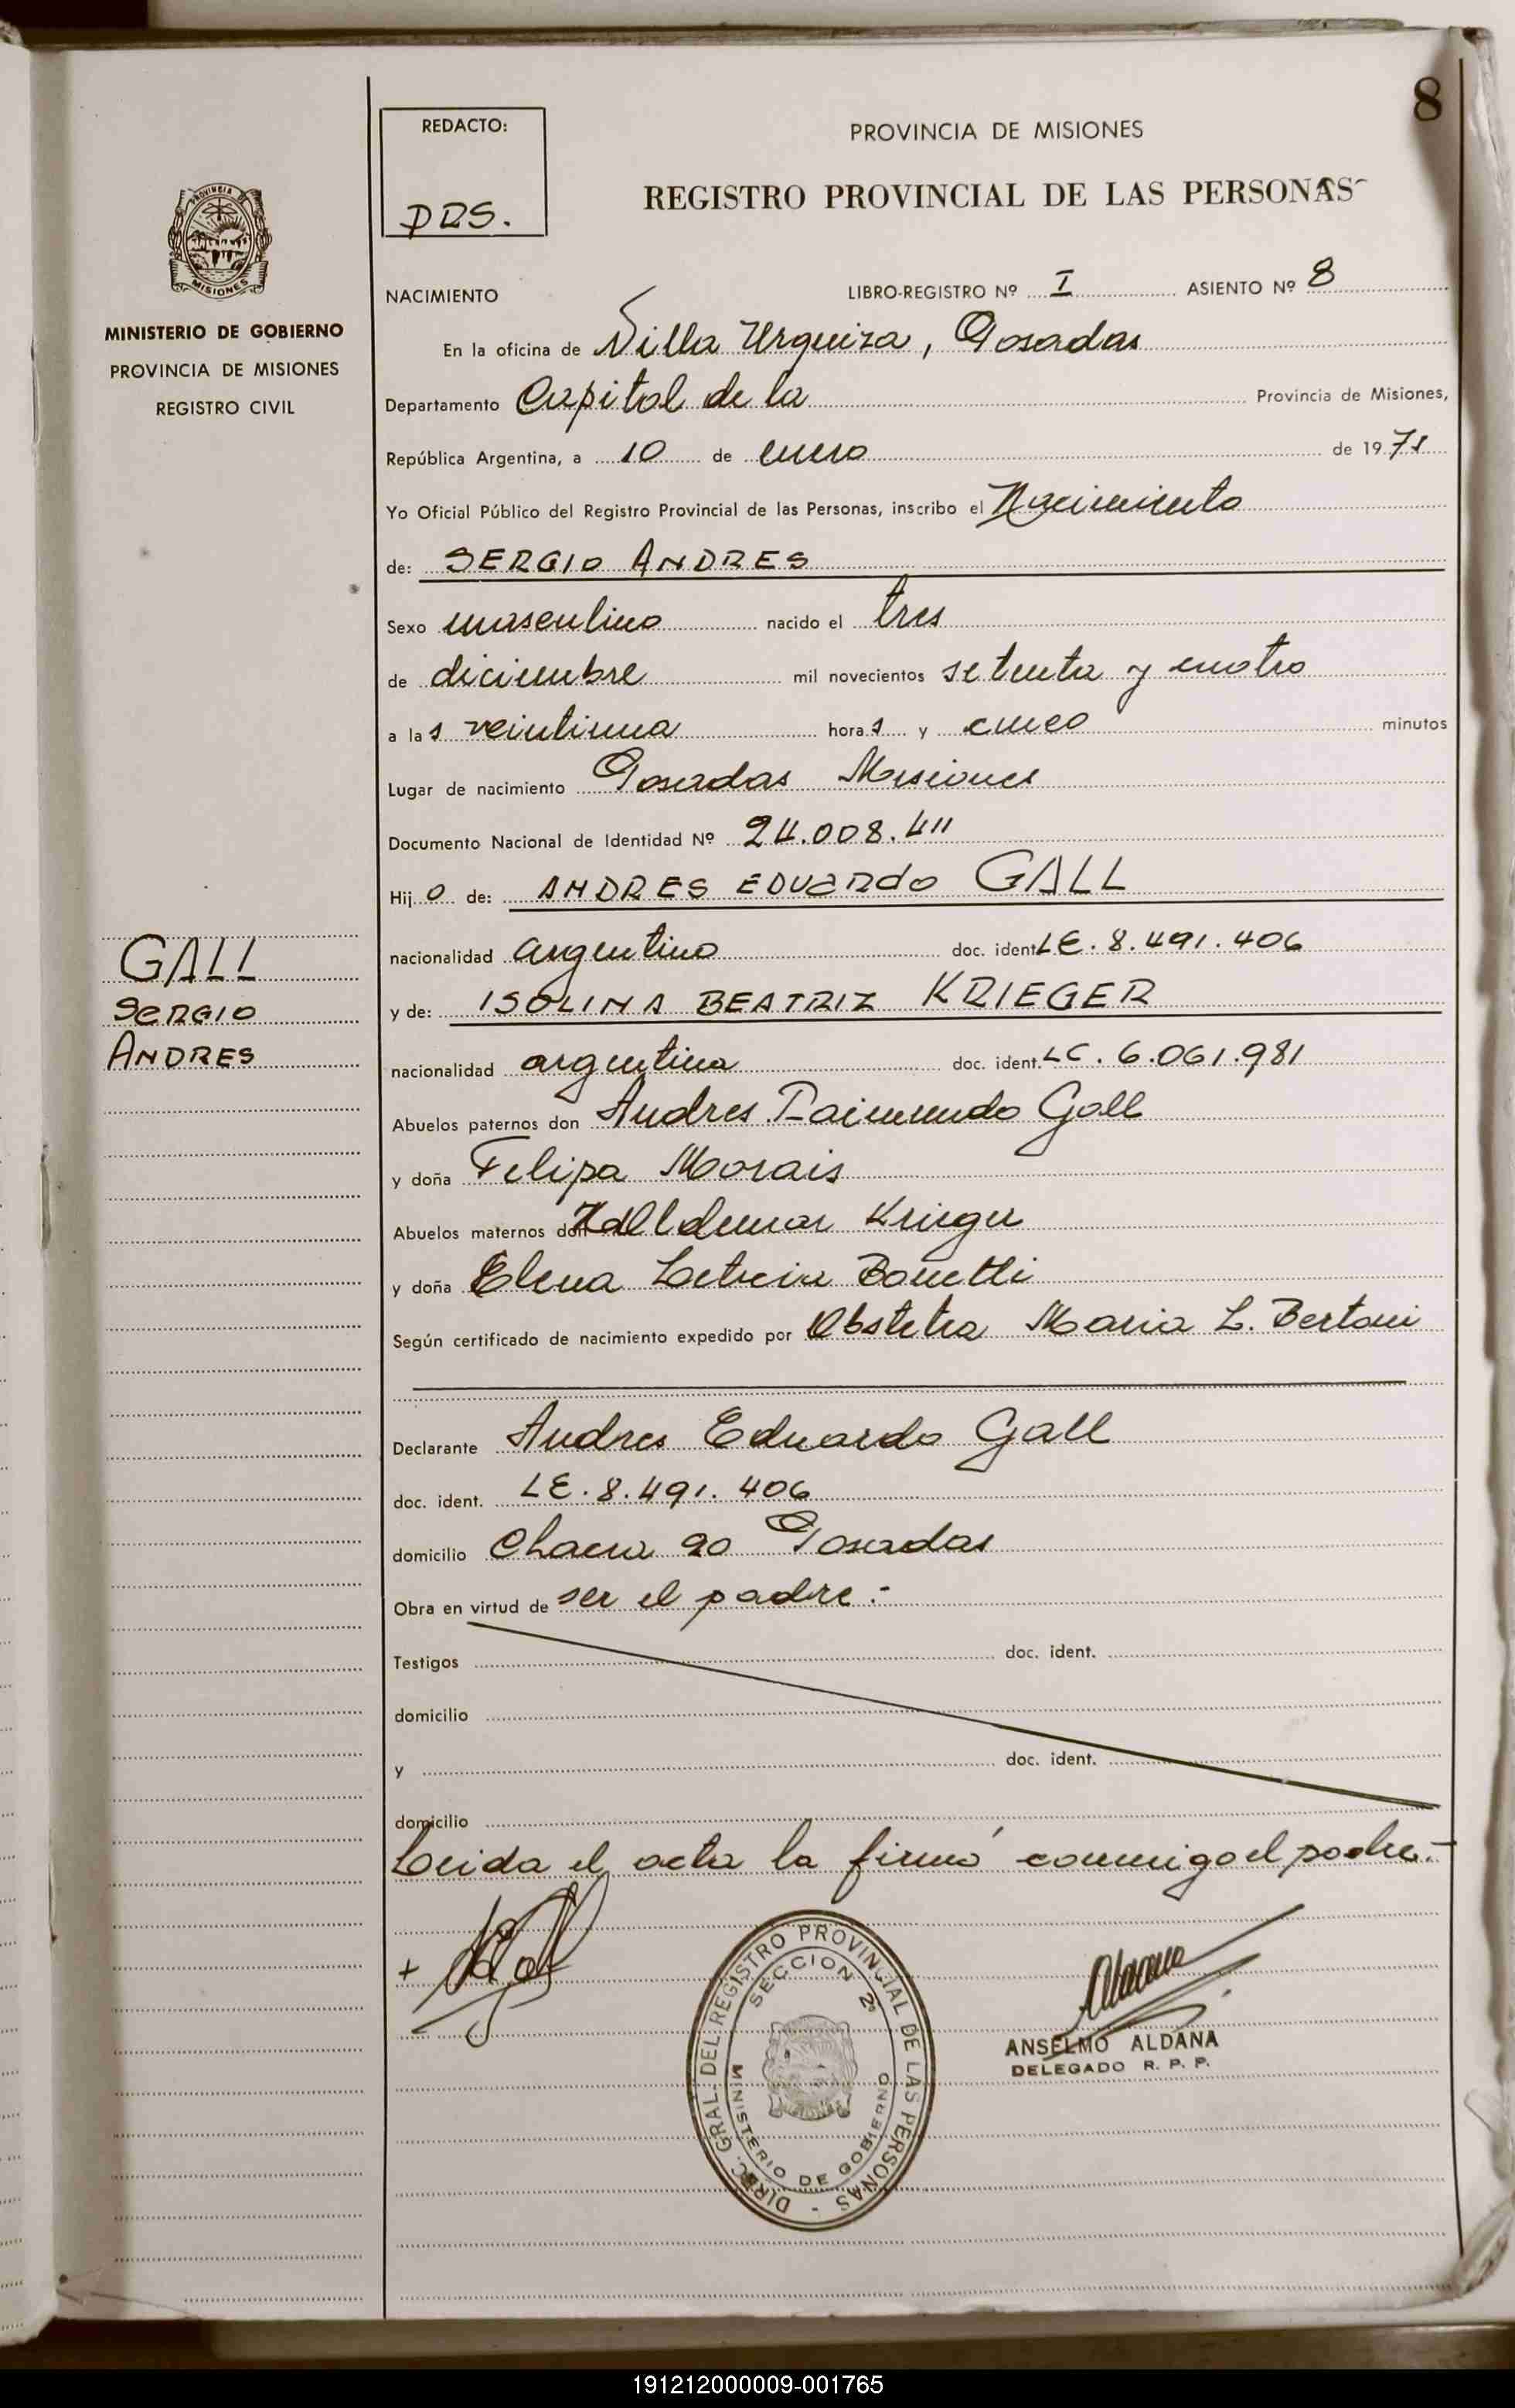 8
REDACTO:
DRS.
PROVINCIA DE MISIONES
REGISTRO PROVINCIAL DE LAS PERSONAS
PROVINCIA
MISIONES
MINISTERIO DE GOBIERNO
PROVINCIA DE MISIONES
REGISTRO CIVIL
NACIMIENTO LIBRO-REGISTRO Nº I ASIENTO Nº 8
En la oficina de Villa Urquiza, Posadas
Departamento Capital de la Provincia de Misiones,
República Argentina, a 10 de enero de 1971
Yo Oficial Público del Registro Provincial de las Personas, inscribo el Nacimiento
de: SERGIO ANDRES
Sexo masculino nacido el tres
de diciembre mil novecientos setenta y cuatro
a las veintiuna horas y cinco minutos
Lugar de nacimiento Posadas Misiones
Documento Nacional de Identidad Nº 24.008.411
Hijo de: ANDRES EDUARDO GALL
nacionalidad argentino doc. ident. LE. 8.491.406
y de: ISOLINA BEATRIZ KRIEGER
nacionalidad argentina doc. ident. LC. 6.061.981
GALL
SERGIO
ANDRES
Abuelos paternos don Andres Raimundo Gall
y doña Felipa Morais
Abuelos maternos don Walldemar Krieger
y doña Elena Leticia Bonetti
Según certificado de nacimiento expedido por Obstetra Maria L. Bertoni
Declarante Andres Eduardo Gall
doc. ident. LE. 8.491.406
domicilio Chacra 90 Posadas
Obra en virtud de ser el padre.-
Testigos doc. ident.
domicilio
y doc. ident.
domicilio
Leida el acta la firmó conmigo el padre.-
DIREC. GRAL. DEL REGISTRO PROVINCIAL DE LAS PERSONAS -
SECCION 2ª
MINISTERIO DE GOBIERNO
ANSELMO ALDANA
DELEGADO R. P. P.
191212000009-001765